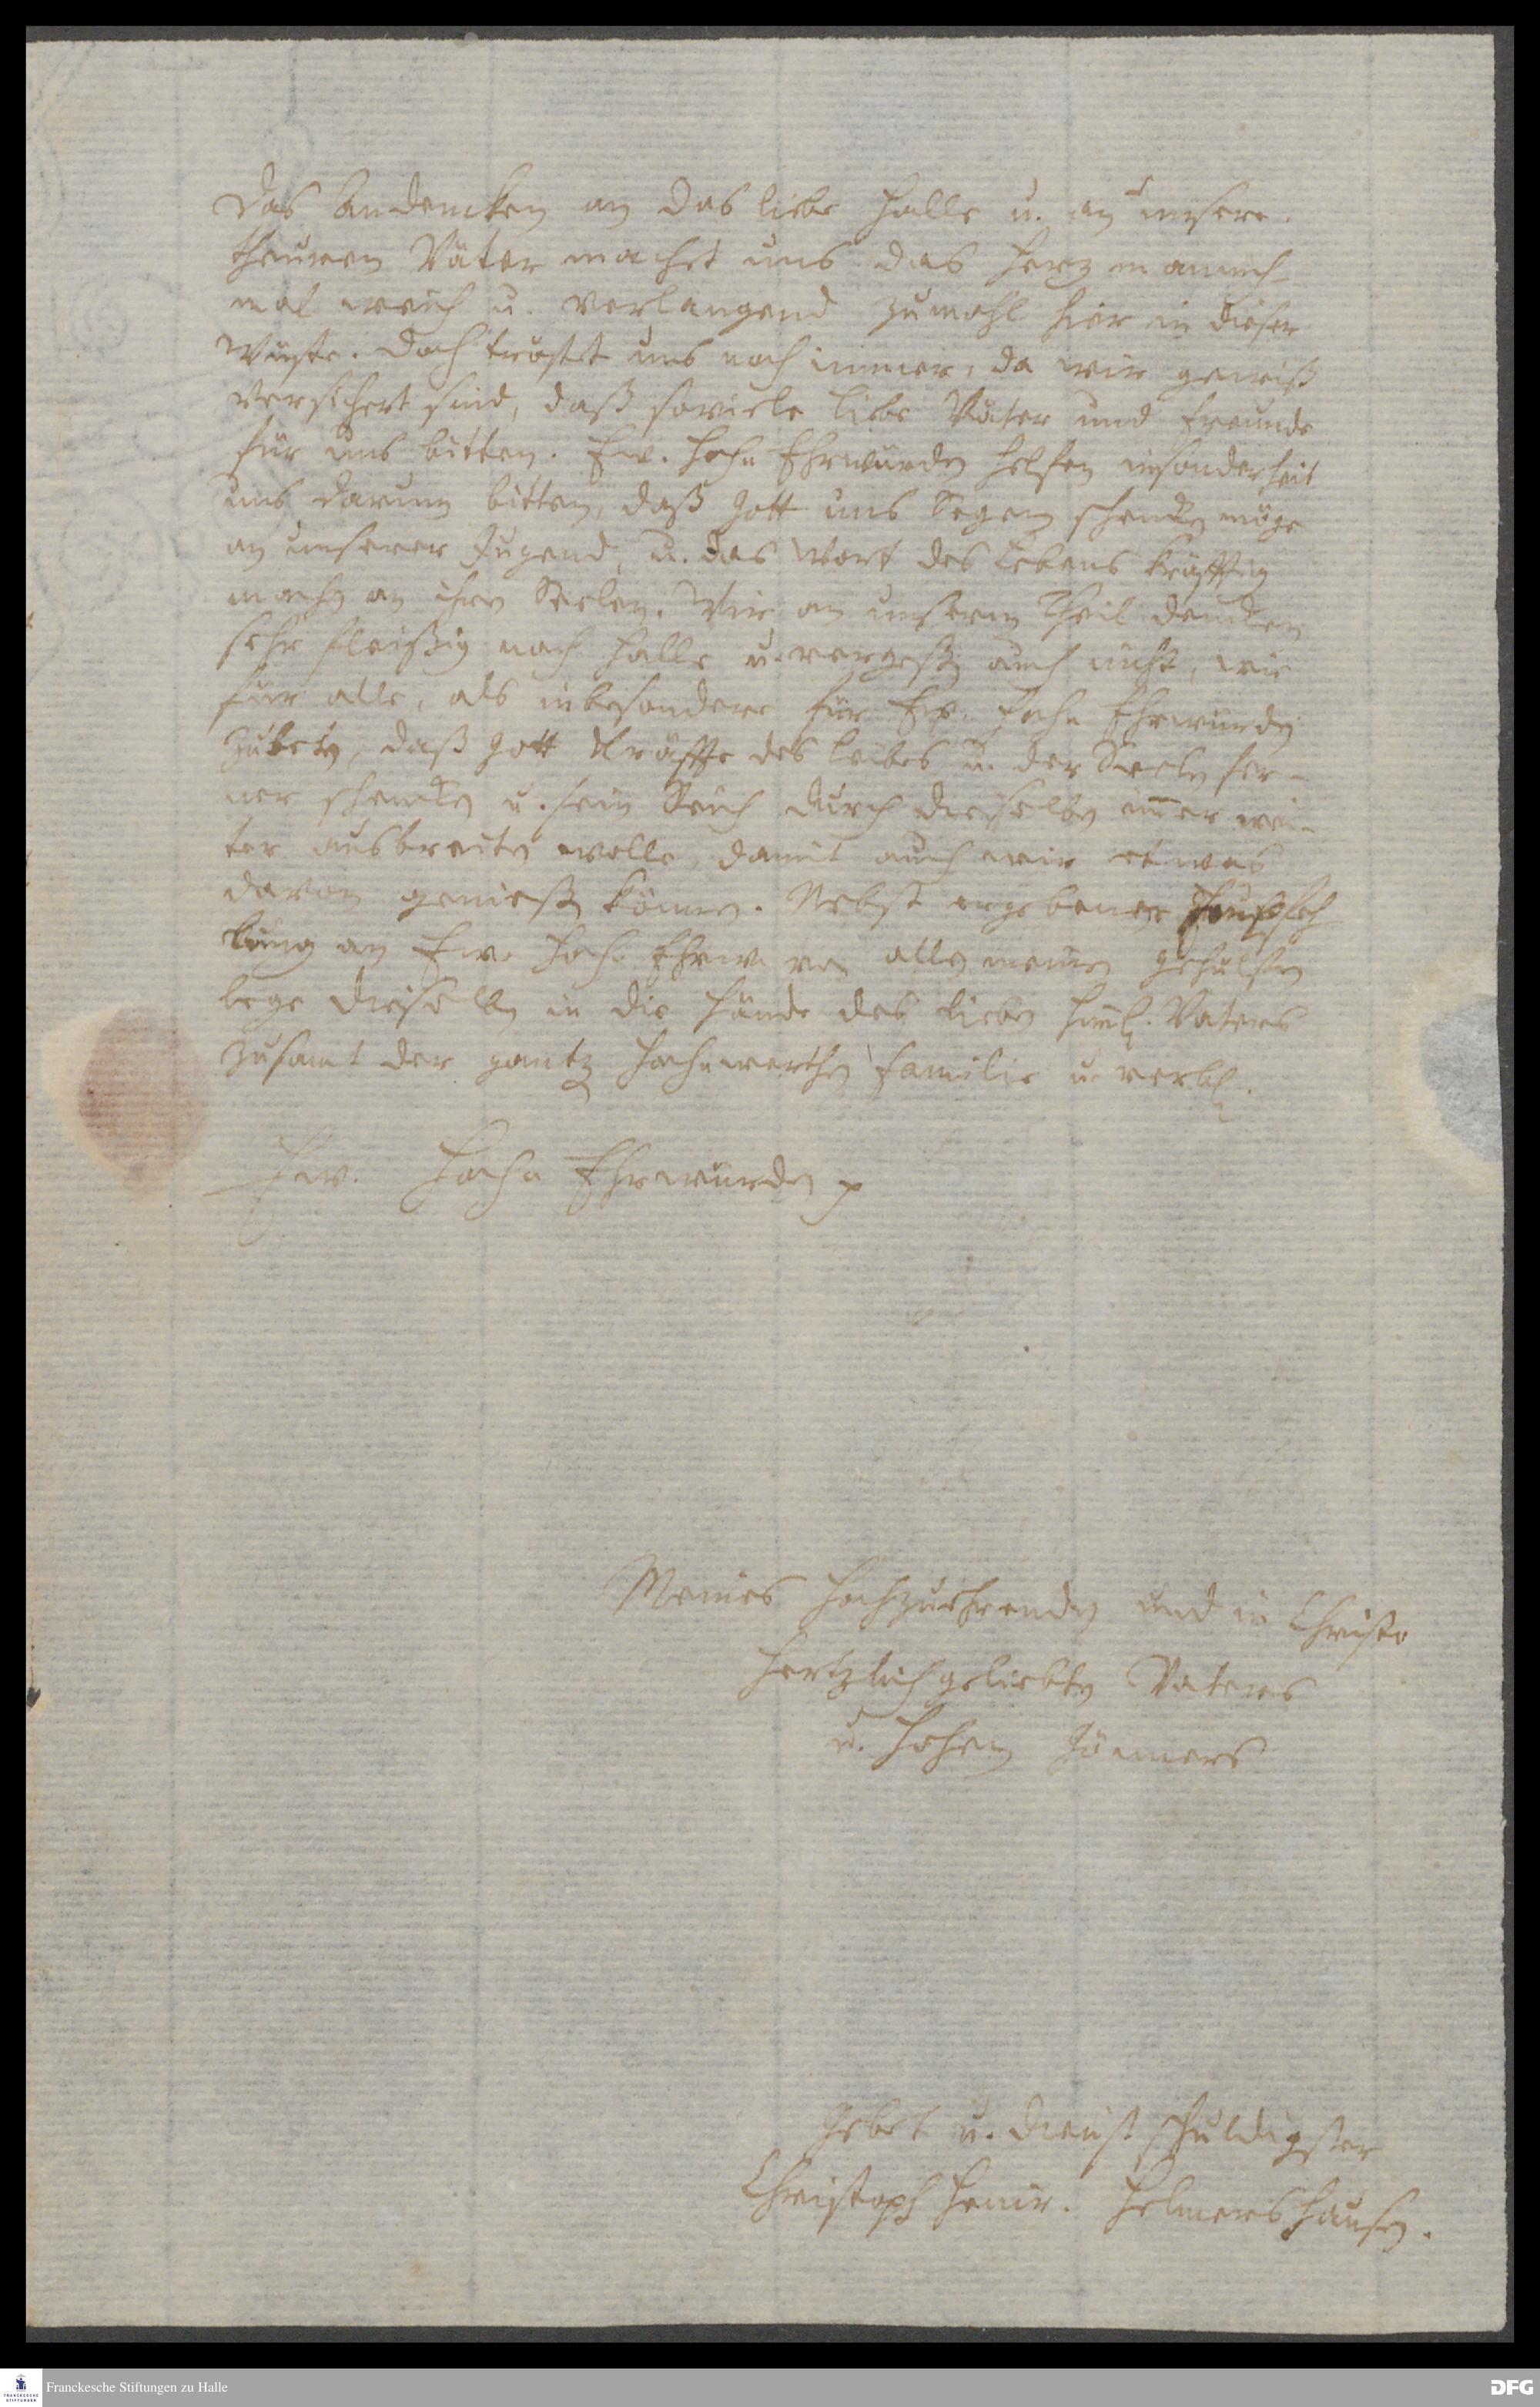 Das Andencken an das liebe Halle u. an unsere
theuren Väter machet uns das Hertz mannich-
mal weich u. verlangend zumahl hier in dieser
Wüste. Doch tröstet uns noch immer, da wir gewiß
versichert sind, daß soviele liebe Väter und Freunde
für uns bitten. Ew. Hoch Ehrwürden helfen insonderheit
uns darum bitten, daß Gott uns Segen schencken möge
an unserer Jugend, u. das Wort des Lebens kräfftig
machen an ihren Seelen. Wir an unserm Theil dencken
sehr fleißig nach Halle u. vergeßen auch nicht, wie
für alle, als inbesondere für Ew. Hoch Ehrwürden
zubeten, daß Gott Kräffte des Leibes u. der Seelen fer-
ner schencken u. sein Reich durch dieselben immer wei-
ter ausbreiten wolle, damit auch wir etwas
davon genießen können. Nebst ergebener Empfeh-
lung an Ew. Hoch Ehrw. von allen meinen Gehülfen
lege dieselben in die Hände des lieben himl. Vaters
zusamt der gantzen Hochwerthen Familie u. verbl.
Ew. Hoch Ehrwürden
Meines Hochzuehrenden und in Christo
Hertzlich geliebten Vaters
u. hohen Gönners
Gebet u. Dienst schuldigster
Christoph Henir. Helmershausen.
Franckesche Stiftungen zu Halle
FRANCKESCHE STIFTUNGEN
DFG